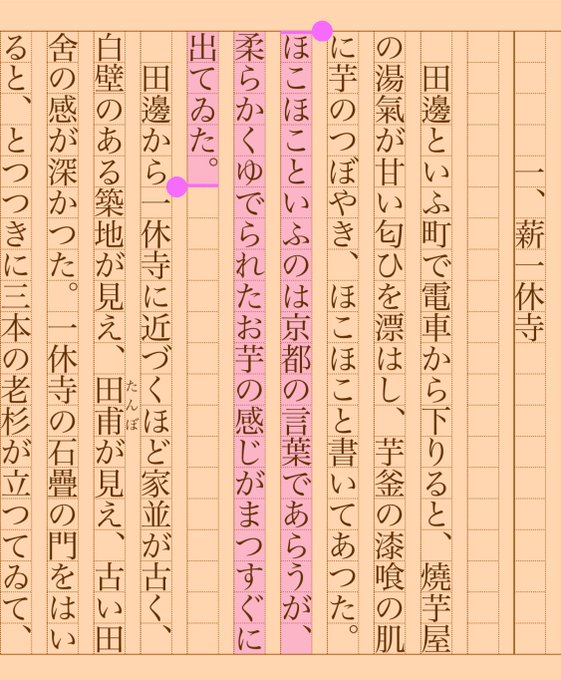 一、薪一休寺
田邊といふ町で電車から下りると、燒芋屋
の湯氣が甘い匂ひを漂はし、芋釜の漆喰の肌
に芋のつぼやき、ほこほこと書いてあつた。
ほこほこといふのは京都の言葉であらうが、
柔らかくゆでられたお芋の感じがまつすぐに
出てゐた。
田邊から一休寺に近づくほど家並が古く、
白壁のある築地が見え、田甫が見え、古い田
たんぼ
舍の感が深かつた。一休寺の石疊の門をはい
ると、とつつきに三本の老杉が立つてゐて、